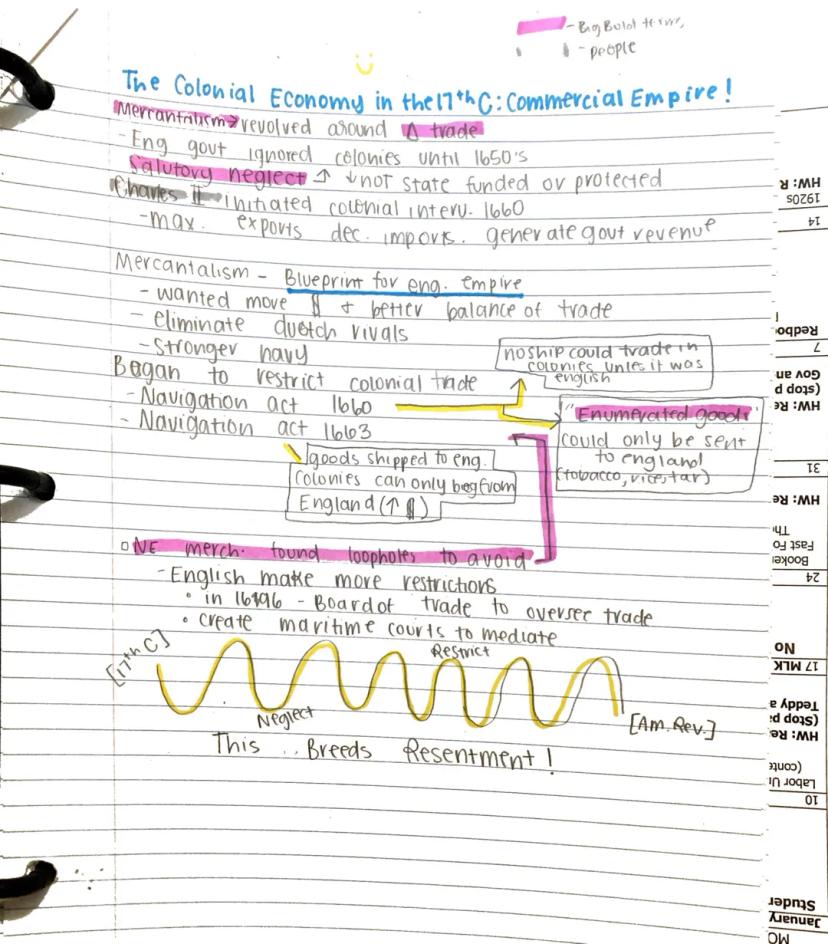 - Big Bold terms,
- people
The Colonial Economy in the 17th C: Commercial Empire!
Mercantalism → revolved around Δ trade
- Eng govt ignored colonies until 1650's
Salutory neglect ↑ ↓ not state funded or protected
Charles II - initiated colonial interv. 1660
- max. exports dec. imports. generate govt revenue
Mercantalism - Blueprint for eng. empire
- wanted more $ + better balance of trade
- eliminate duetch rivals
- Stronger navy
no ship could trade in
colonies unles it was
english
Began to restrict colonial trade
- Navigation act 1660
"Enumerated goods"
could only be sent
to england
(tobacco, rice, tar)
- Navigation act 1663
goods shipped to eng.
colonies can only beg from
England (↑ $)
NE merch. found loopholes to avoid
- English make more restrictions
• in 1696 - Board of trade to oversee trade
• create maritime courts to mediate
[17th C]
Restrict
Neglect
[Am. Rev.]
This .. Breeds Resentment!
HW: R
1920s
14
Redbor
7
Gov an
(stop p
HW: Re
31
HW: Re
Th
Fast Fo
Booker
24
No
17 MLK
Teddy a
(Stop pa
HW: Re
(conte
Labor Ur
10
Studer
January
MO